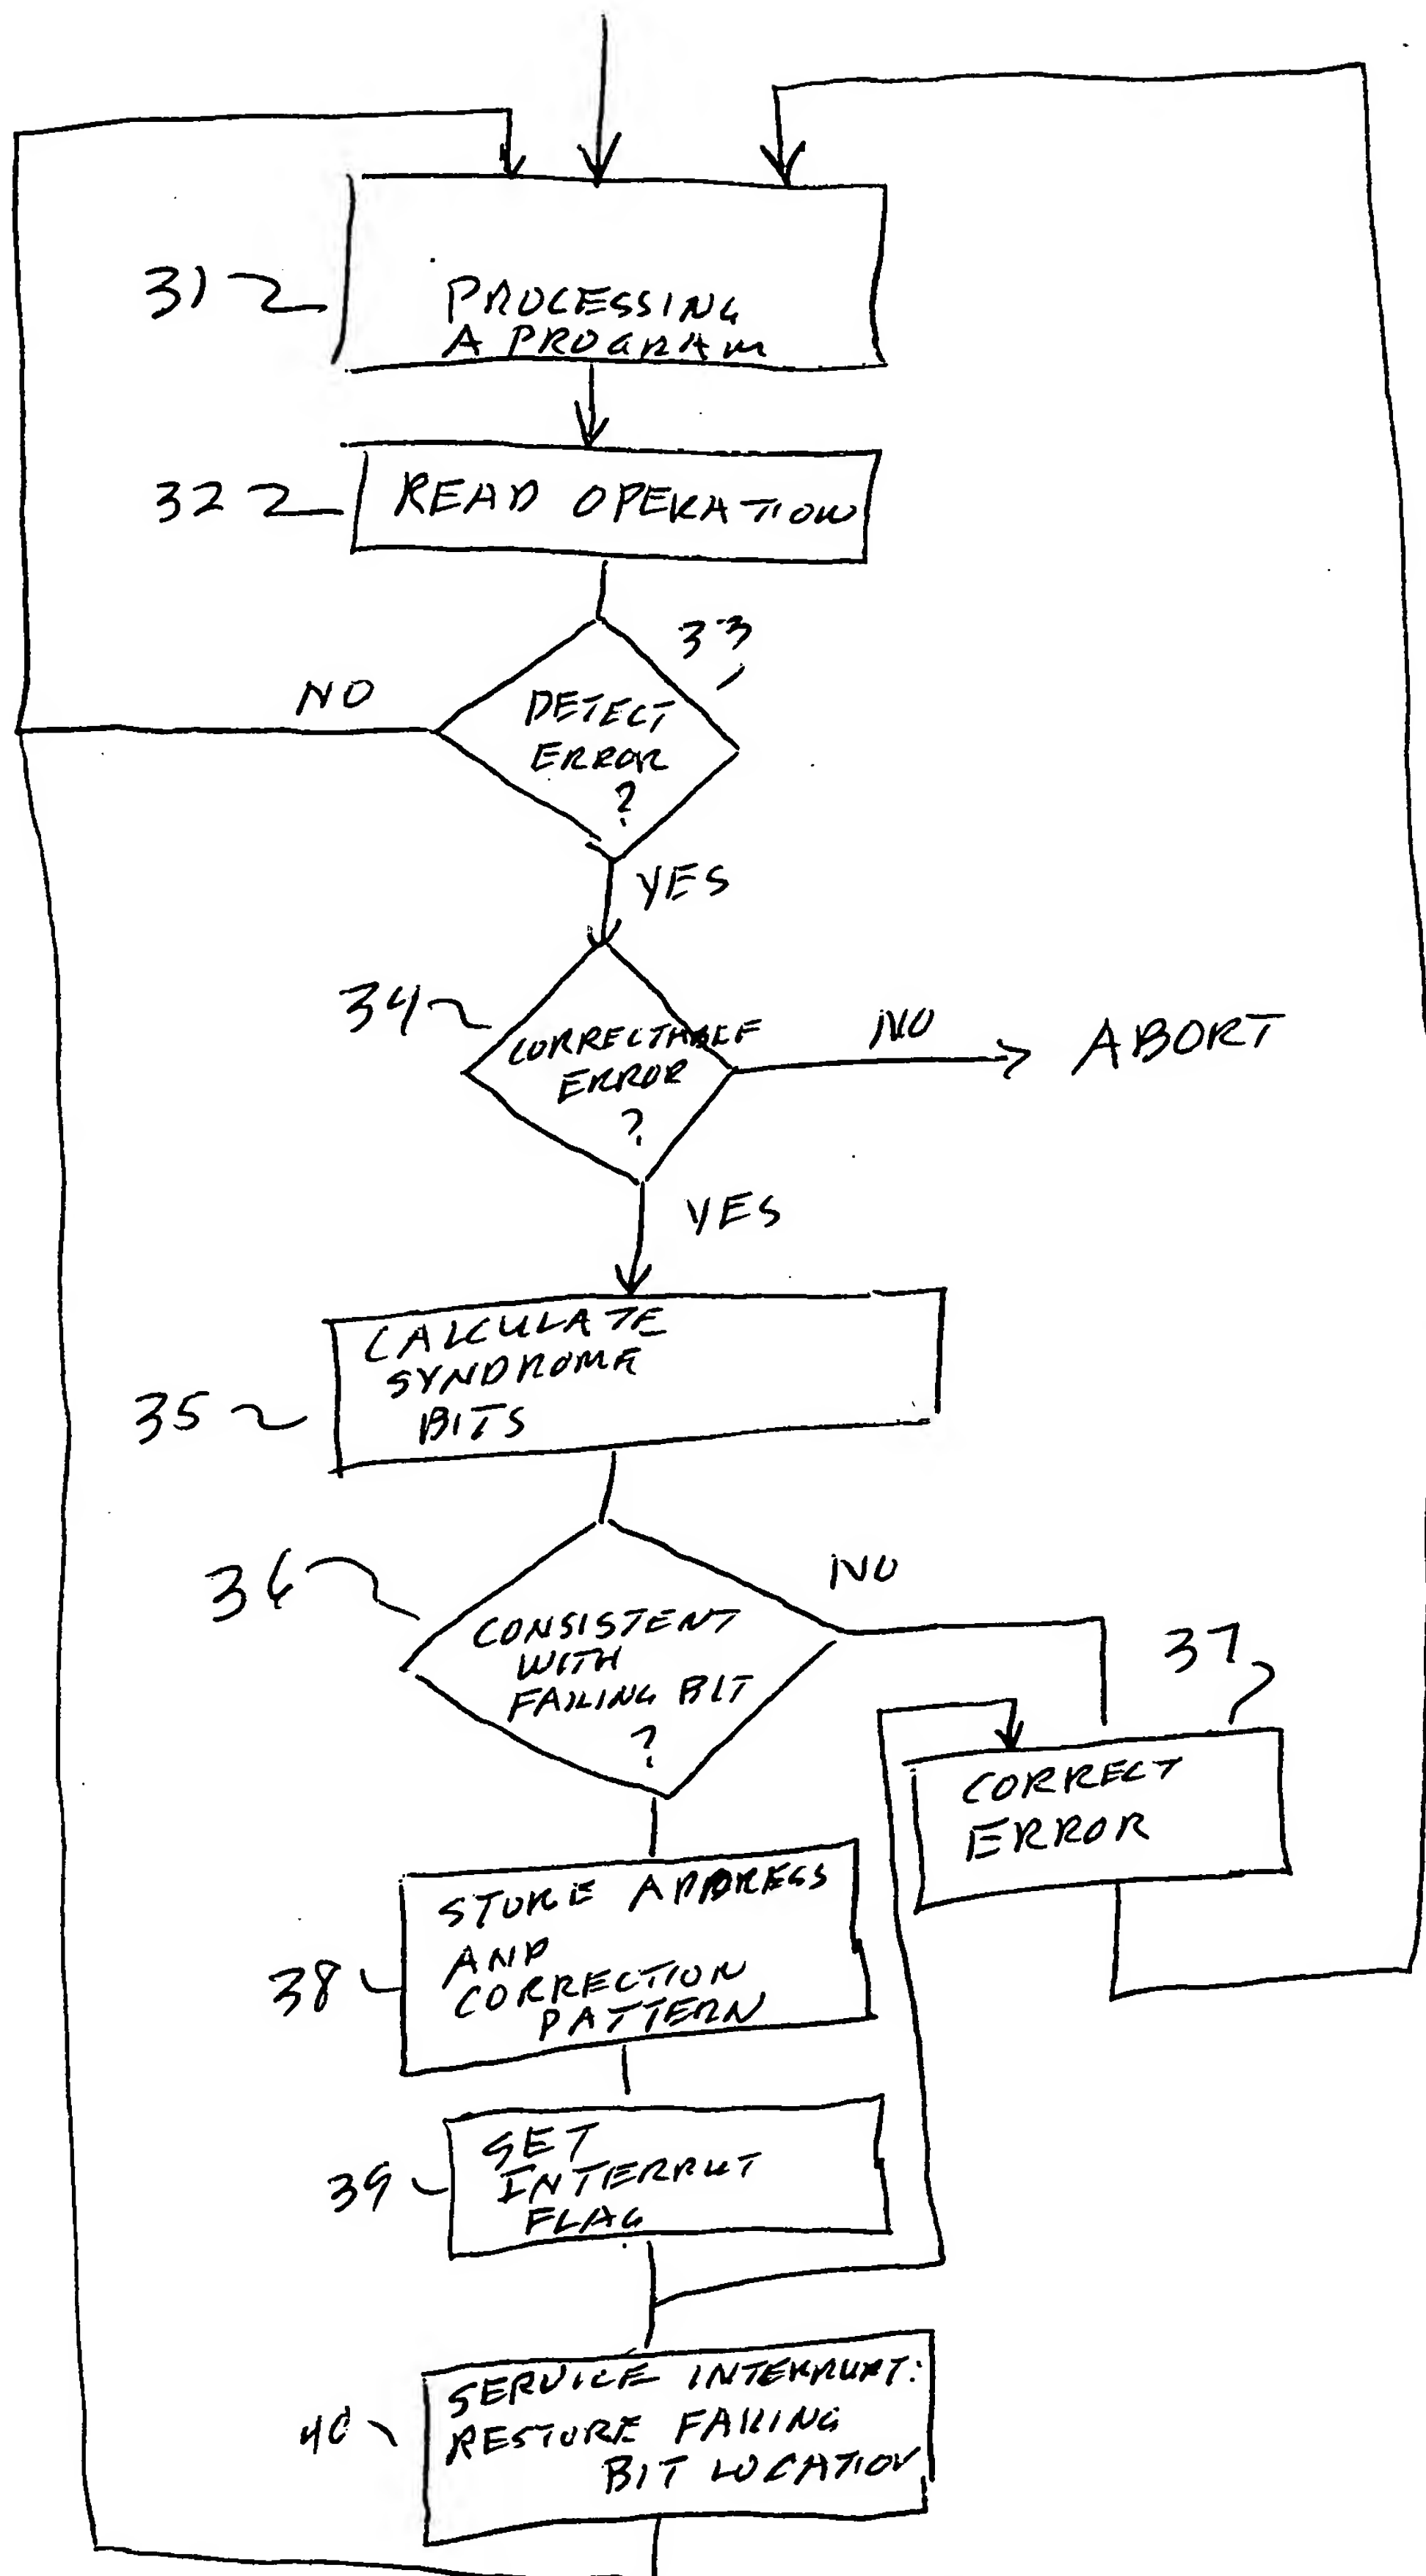 31
PROCESSING
A PROGRAM
32
READ OPERATION
33
NO
DETECT
ERROR
?
YES
34
CORRECTABLE
ERROR
?
NO
ABORT
YES
CALCULATE
SYNDROME
BITS
35
36
NO
CONSISTENT
WITH
FAILING BIT
?
37
CORRECT
ERROR
STORE ADDRESS
AND
CORRECTION
PATTERN
38
SET
INTERRUT
FLAG
39
SERVICE INTERRUPT:
RESTORE FAILING
BIT LOCATION
40